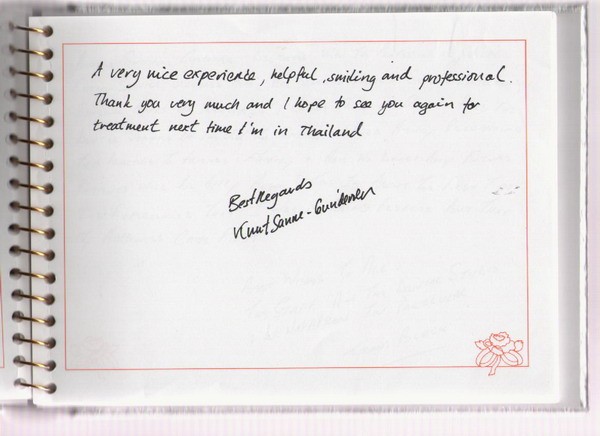 A very nice experience, helpful, smiling and professional.
Thank you very much and I hope to see you again for
treatment next time I'm in Thailand
Best Regards
Knut Sanne-